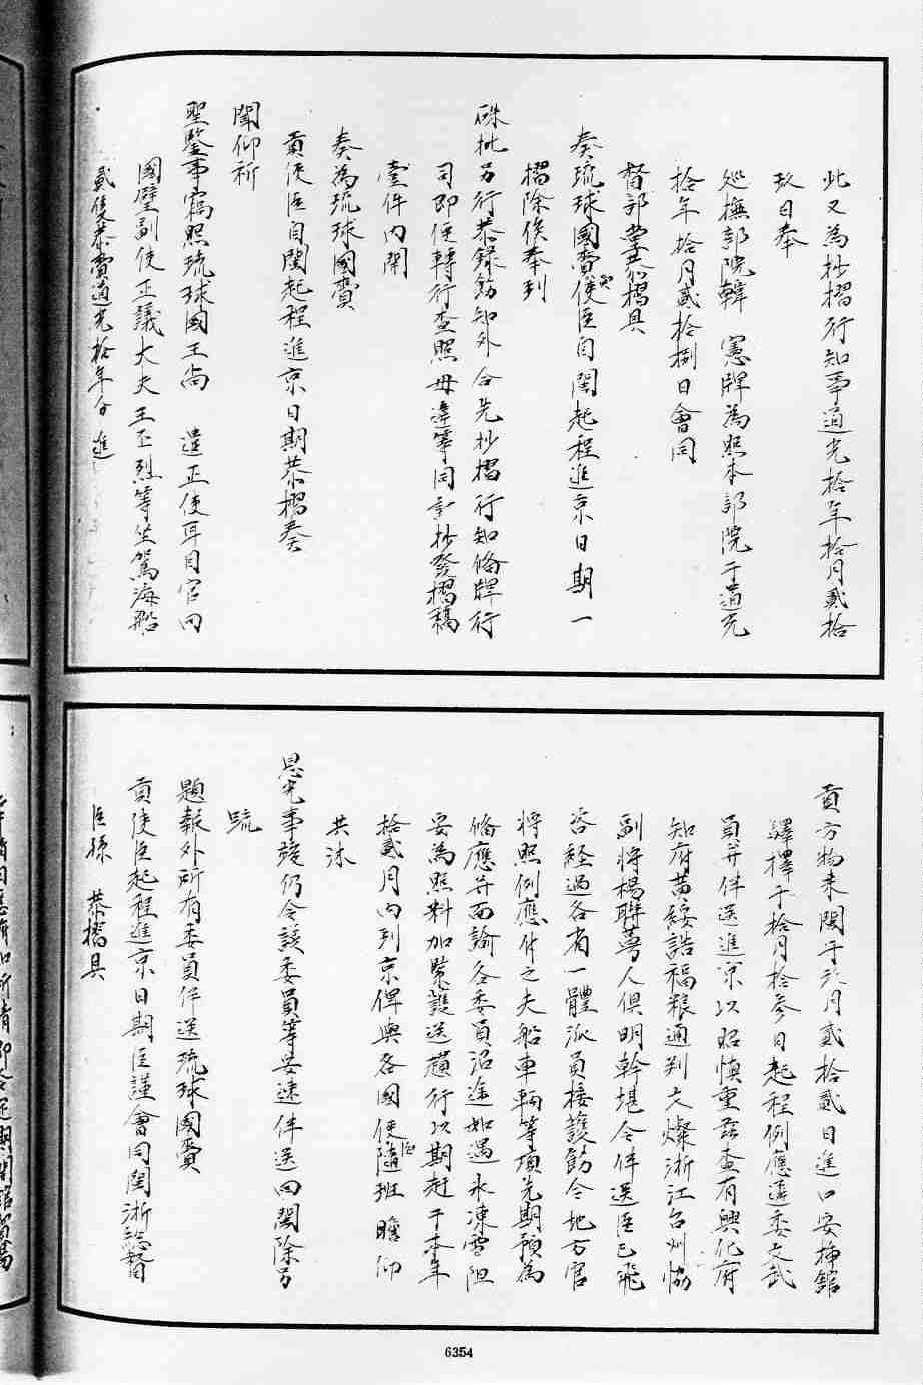 此又為抄摺行知事道光拾年拾月貳拾
玖日奉
廵撫部院韓　憲牌為照本部院于道光
拾年拾月貳拾捌日會同
督部堂恭摺具
奏琉球國貢使臣自閩起程進京日期一
摺除俟奉到
硃批另行恭錄飭知外合先抄摺行知俻牌行
司即便轉行查照毋違等同計抄發摺稿
壹件內開
奏為琉球國貢
貢使臣自閩起程進京日期恭摺奏
聞仰祈
聖鑒事窩照琉球國王尚　遣正使耳目官向
國璧副使正議大夫王丕烈等坐駕海船
貳隻恭賫道光拾年分　進
貢方物來閩于六月貳拾貳日進口安揷館
驛擇于拾月拾叁日起程例應遴委文武
員弁伴送進京以昭慎重茲查有興化府
知府黃綏誥福粮通判文燦浙江台州恊
副將楊聯蕚人俱明幹堪令伴送臣已飛
咨經過各省一體派員接護飭令地方官
將照例應付之夫船車輌等項先期預為
俻應并面諭各委員沿途如遇氷凍雪阻
妥為照料加緊護送趲行以期赶于本年
拾貳月內到京俾與各國使臣隨班　瞻仰
共沐
恩光事竣仍令該委員等妥速伴送回閩除另
疏
題報外所有委員伴送琉球國貢
貢使臣起程進京日期臣謹會同閩浙總督
臣孫　恭摺具
6354